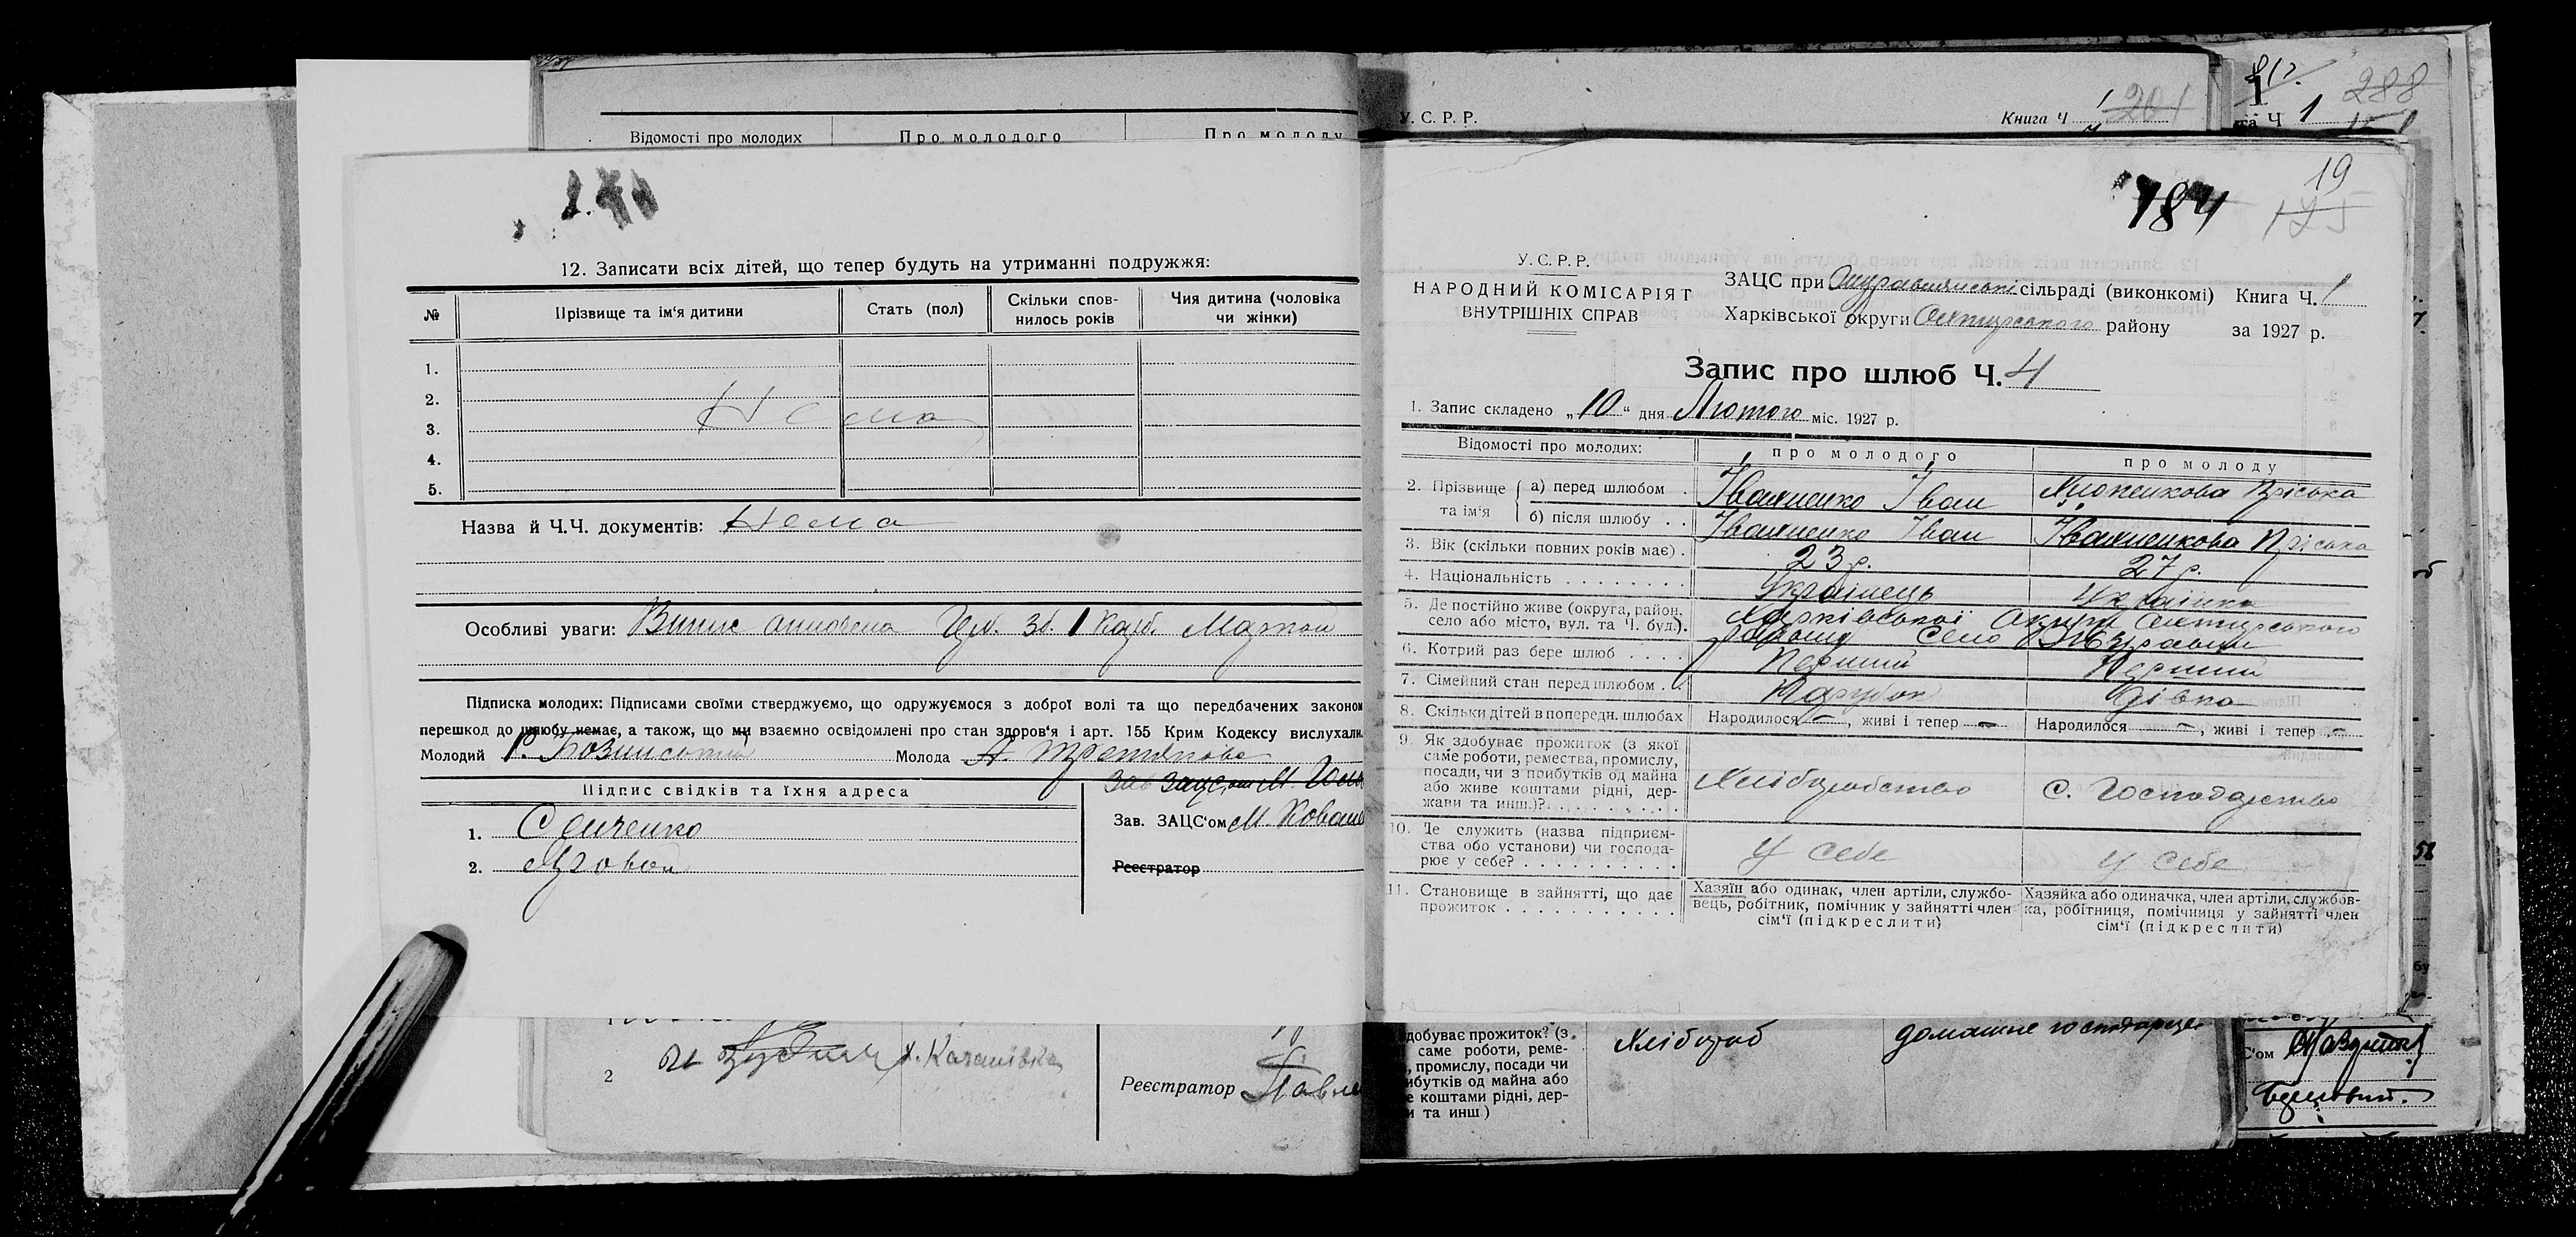 Відомості про молодих Про молодого Про молоду
12. Записати всіх дітей, що тепер будуть на утриманні подружжя:
№ Прізвище та ім'я дитини Стать (пол) Скільки спов-нилось років Чия дитина (чоловіка чи жінки)
1.
2.
Нема
3.
4.
5.
Назва й Ч.Ч. документів: Нема
Особливі уваги:
Підписка молодих: Підписами своїми стверджуємо, що одружуємося з доброї волі та що передбачених законом
перешкод до шлюбу немає, а також, що ми взаємно освідомлені про стан здоров'я і арт. 155 Крим Кодексу вислухали
Молодий Молода А. Третякова
Підпис свідків та їхня адреса
1. Сенченко
Зав. ЗАЦС'ом М Ковал
2. Яровой
Реєстратор
2 х. Качанівка
Реєстратор Павле
У. С. Р. Р. Книга Ч 1 201
288
Ч 1
19
184 175
У. С. Р. Р.
НАРОДНИЙ КОМІСАРІЯТ
ВНУТРІШНІХ СПРАВ
ЗАЦС при сільраді (виконкомі) Книга Ч. 1
Харківської округи Охтирського району за 1927 р.
Запис про шлюб Ч. 4
1. Запис складено „10" дня Лютого міс. 1927 р.
Відомості про молодих: про молодого про молоду
2. Прізвище та ім'я а) перед шлюбом . Івахненко Іван Пріська
б) після шлюбу . . Івахненко Іван Івахненкова Пріська
3. Вік (скільки повних років має) . 23 р. 27 р.
4. Національність . . . . . . . . Українець Українка
5. Де постійно живе (округа, район, Харківської Округи Охтирського
село або місто, вул. та Ч. буд.). району Село Журавне
6. Котрий раз бере шлюб . . . . Перший Перший
7. Сімейний стан перед шлюбом . . Парубок Дівка
8. Скільки дітей в попередн. шлюбах Народилося —, живі і тепер — Народилося —, живі і тепер —
9. Як здобуває прожиток (з якої
саме роботи, ремества, промислу,
посади, чи з прибутків од майна
або живе коштами рідні, дер-
жави та инш.)?. . . . . . . . . . Хліборобство С. Господарство
10. Де служить (назва підприєм-
ства обо установи) чи господа-
рює у себе? . . . . . . . . . . У себе У себе
11. Становище в зайнятті, що дає
прожиток . . . . . . . . . . . .
Хазяїн або одинак, член артіли, службо-
вець, робітник, помічник у зайнятті член
сім'ї (підкреслити)
Хазяйка або одиначка, член артіли, службов-
ка, робітниця, помічниця у зайнятті член
сім'ї (підкреслити)
58
добуває прожиток? (з
саме роботи, реме-
, промислу, посади чи
ибутків од майна або
е коштами рідні, дер-
и та инш)
Хлібороб домашнє
С'ом